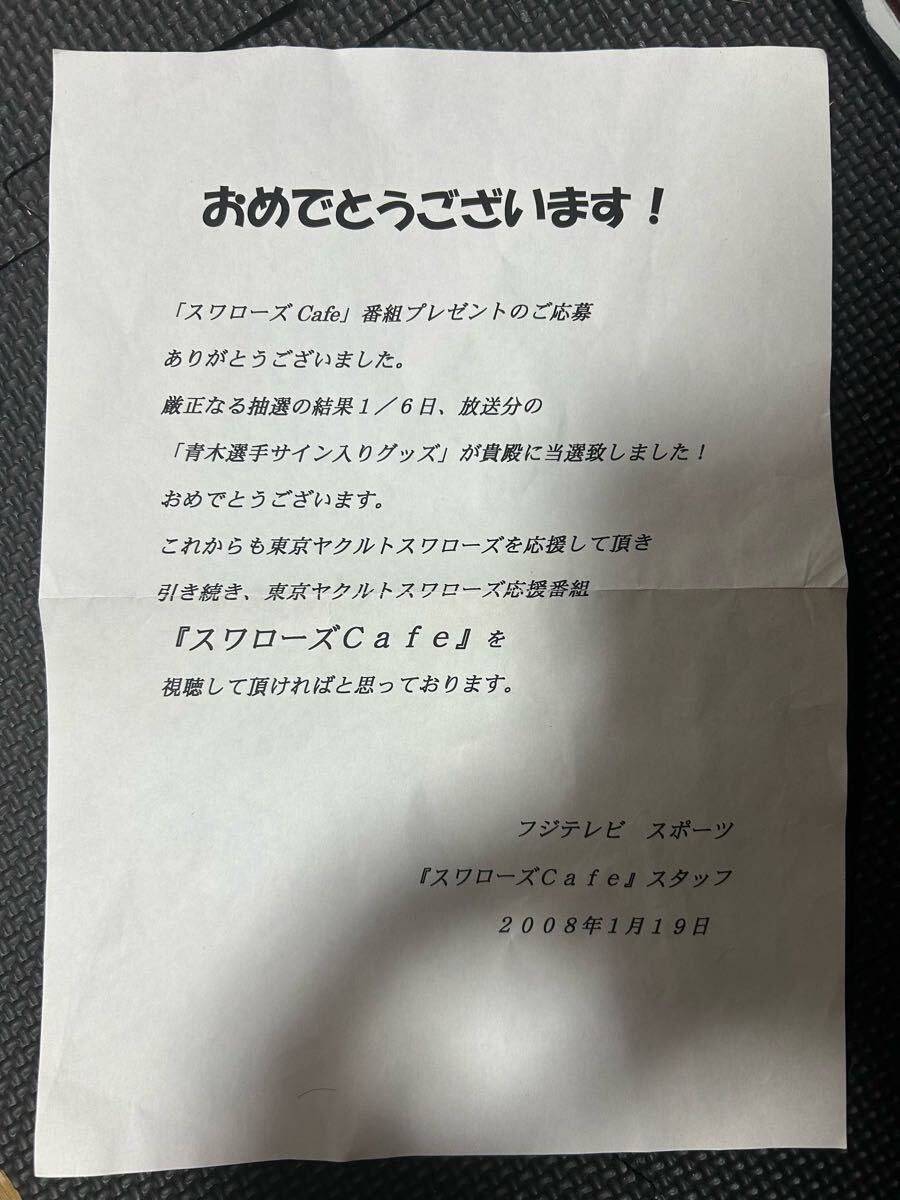 おめでとうございます！
「スワローズ Cafe」番組プレゼントのご応募
ありがとうございました。
厳正なる抽選の結果１／６日、放送分の
「青木選手サイン入りグッズ」が貴殿に当選致しました！
おめでとうございます。
これからも東京ヤクルトスワローズを応援して頂き
引き続き、東京ヤクルトスワローズ応援番組
『スワローズＣａｆｅ』を
視聴して頂ければと思っております。
フジテレビ　スポーツ
『スワローズＣａｆｅ』スタッフ
２００８年１月１９日